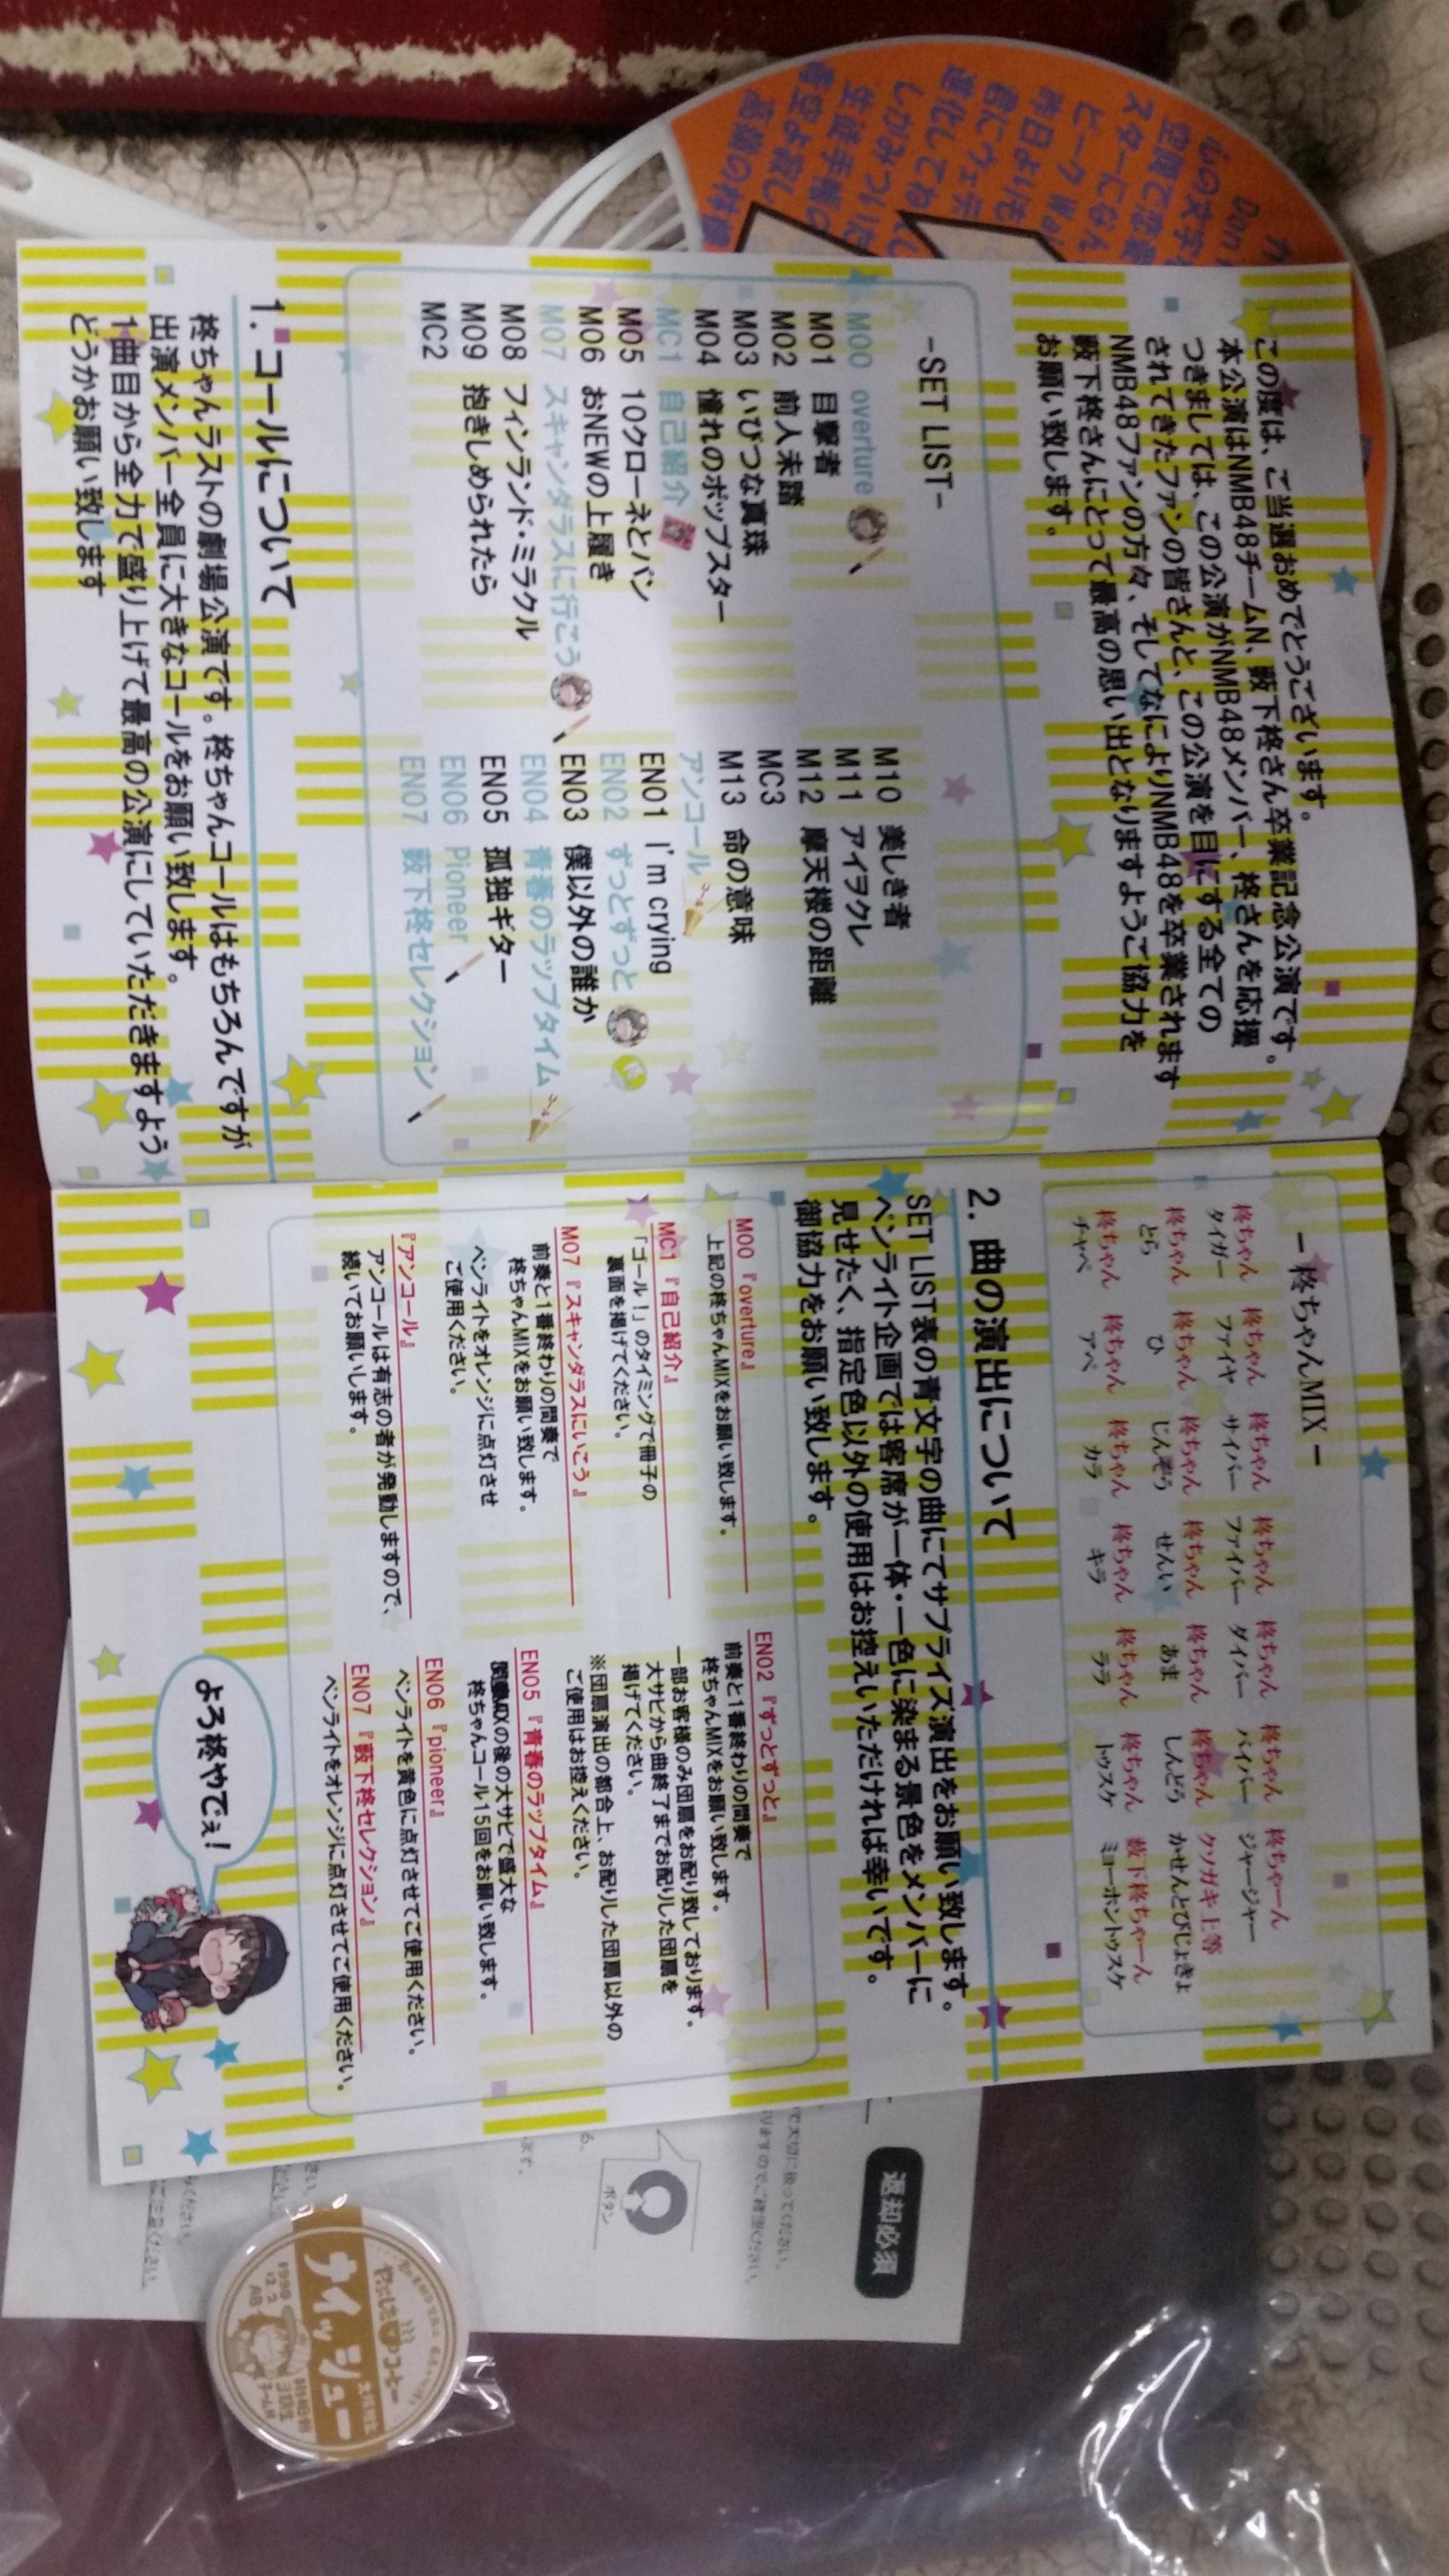 この度は、ご当選おめでとうございます。
本公演はNMB48チームN、藪下柊さん卒業記念公演です。
つきましては、この公演がNMB48メンバー、柊さんを応援
されてきたファンの皆さんと、この公演を目にする全ての
NMB48ファンの方々、そしてなによりNMB48を卒業されます
藪下柊さんにとって最高の思い出となりますようご協力を
お願い致します。
-SET LIST-
M00 overture
M01 目撃者
M02 前人未踏
M03 いびつな真珠
M04 憧れのポップスター
MC1 自己紹介
M05 10クローネとパン
M06 おNEWの上履き
M07 スキャンダラスに行こう
M08 フィンランド・ミラクル
M09 抱きしめられたら
MC2
M10 美しき者
M11 アイヲクレ
M12 摩天楼の距離
MC3
M13 命の意味
アンコール
EN01 I'm crying
EN02 ずっとずっと
EN03 僕以外の誰か
EN04 青春のラップタイム
EN05 孤独ギター
EN06 Pioneer
EN07 藪下柊セレクション
1. コールについて
柊ちゃんラストの劇場公演です。柊ちゃんコールはもちろんですが
出演メンバー全員に大きなコールをお願い致します。
1曲目から全力で盛り上げて最高の公演にしていただきますよう
どうかお願い致します
- 柊ちゃんMIX -
柊ちゃん 柊ちゃん 柊ちゃん 柊ちゃん 柊ちゃん 柊ちゃん 柊ちゃーん
タイガー ファイヤ サイバー ファイバー ダイバー バイバー ジャージャー
柊ちゃん 柊ちゃん 柊ちゃん 柊ちゃん 柊ちゃん 柊ちゃん クソガキ上等
とら ひ じんぞう せんい あま しんどう かせんとびじょきょ
柊ちゃん 柊ちゃん 柊ちゃん 柊ちゃん 柊ちゃん 柊ちゃん 藪下柊ちゃーん
チャペ アペ カラ キラ ララ トゥスケ ミョーホントゥスケ
2. 曲の演出について
SET LIST表の青文字の曲にてサプライズ演出をお願い致します。
ペンライト企画では客席が一体・一色に染まる景色をメンバーに
見せたく、指定色以外の使用はお控えいただければ幸いです。
御協力をお願い致します。
M00『overture』
上記の柊ちゃんMIXをお願い致します。
MC1『自己紹介』
「ゴール！」のタイミングで冊子の
裏面を掲げてください。
M07『スキャンダラスにいこう』
前奏と1番終わりの間奏で
柊ちゃんMIXをお願い致します。
ペンライトをオレンジに点灯させ
ご使用ください。
『アンコール』
アンコールは有志の者が発動しますので、
続いてお願いします。
EN02『ずっとずっと』
前奏と1番終わりの間奏で
柊ちゃんMIXをお願い致します。
一部お客様のみ団扇をお配り致しております。
大サビから曲終了までお配りした団扇を
掲げてください。
※団扇演出の都合上、お配りした団扇以外の
ご使用はお控えください。
EN05『青春のラップタイム』
の後の大サビで盛大な
柊ちゃんコール15回をお願い致します。
EN06『pioneer』
ペンライトを黄色に点灯させてご使用ください。
EN07『藪下柊セレクション』
ペンライトをオレンジに点灯させてご使用ください。
よろ柊やでぇ！
返却必須
で大切に扱ってください。
りますのでご確認ください。
ボタン
ナイッシュー
コーヒー